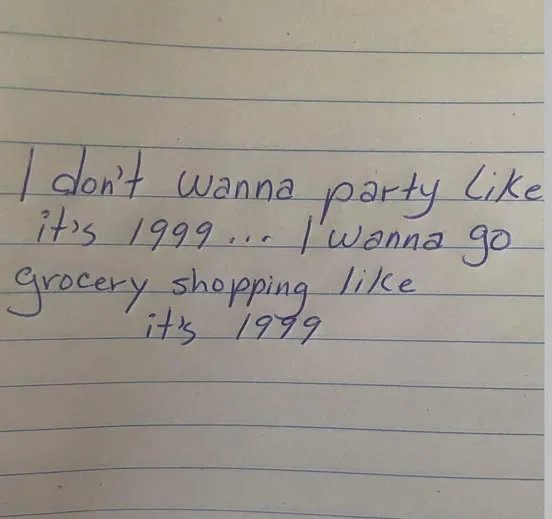 I don't wanna party like
it's 1999... I wanna go
grocery shopping like
it's 1999